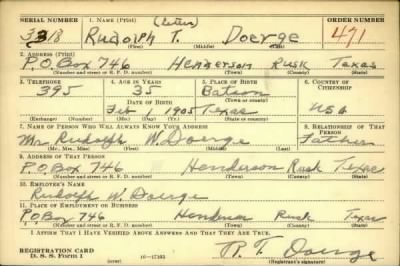 SERIAL NUMBER 1. NAME (Print) (Letter) ORDER NUMBER
3318 Rudolph T. Doerge 471
(First) (Middle) (Last)
2. ADDRESS (Print)
P.O. Box 746 Henderson Rusk Texas
(Number and street or R. F. D. number) (Town) (County) (State)
3. TELEPHONE 4. AGE IN YEARS 5. PLACE OF BIRTH 6. COUNTRY OF CITIZENSHIP
395 35 Batson
DATE OF BIRTH (Town or county)
Feb 1 1905 Texas USA
(Exchange) (Number) (Mo.) (Day) (Yr.) (State or country)
7. NAME OF PERSON WHO WILL ALWAYS KNOW YOUR ADDRESS 8. RELATIONSHIP OF THAT PERSON
Mr Rudolph W. Doerge Father
(Mr., Mrs., Miss) (First) (Middle) (Last)
9. ADDRESS OF THAT PERSON
P.O. Box 746 Henderson Rusk Texas
(Number and street or R. F. D. number) (Town) (County) (State)
10. EMPLOYER'S NAME
Rudolph W. Doerge
11. PLACE OF EMPLOYMENT OR BUSINESS
P.O. Box 746 Henderson Rusk Texas
(Number and street or R. F. D. number) (Town) (County) (State)
I AFFIRM THAT I HAVE VERIFIED ABOVE ANSWERS AND THAT THEY ARE TRUE.
REGISTRATION CARD
D. S. S. FORM 1 (over) 16—17105 R. T. Doerge
(Registrant's signature)